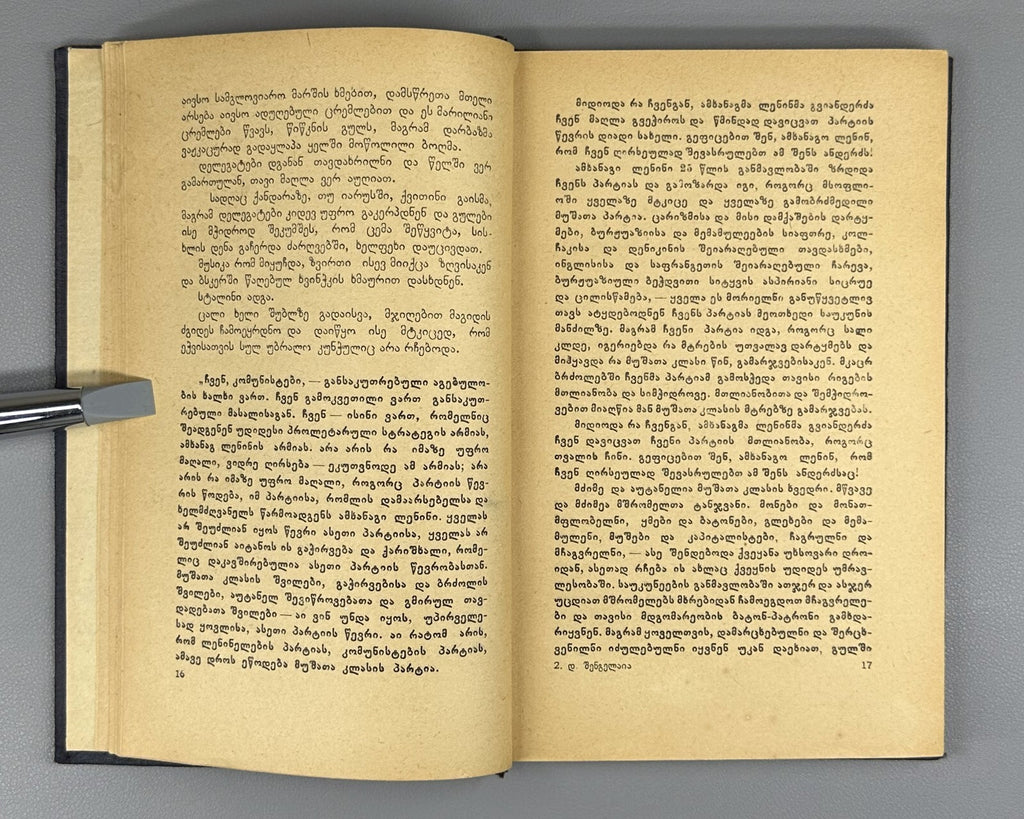 აივსო სამგლოვიარო მარშის ხმებით, დამსწრეთა მთელი
არსება აივსო ადუღებული ცრემლებით და ეს მარილიანი
ცრემლები წვავს, წიწკნის გულს, მაგრამ დარბაზმა
ვაჟკაცურად გადაყლაპა ყელში მოწოლილი ბოღმა.
დელეგატები დგანან თავდახრილნი და წელში ვერ
გამართულან, თავი მაღლა ვერ აუღიათ.
სადღაც ქანდარაზე, თუ იარუსში, ქვითინი გაისმა,
მაგრამ დელეგატები კიდევ უფრო გაკერპდნენ და გულები
ისე მჭიდროდ შეკუმშეს, რომ ცემა შეწყვიტა, სის-
ხლის დენა გაჩერდა ძარღვებში, ხელფეხი დაუცივდათ.
მუსიკა რომ მიყუჩდა, ზვირთი ისევ მიიქცა ზღვისაკენ
და ბსკერში წაღებულ ხვინჭკის ხმაურით დასხდნენ.
სტალინი ადგა.
ცალი ხელი შუბლზე გადაისვა, მჯიღებით მაგიდის
ძგიდეს ჩამოეყრდნო და დაიწყო ისე მტკიცედ, რომ
ეჭვისათვის სულ უბრალო კუნჭულიც არა რჩებოდა.
„ჩვენ, კომუნისტები, — განსაკუთრებული აგებულო-
ბის ხალხი ვართ. ჩვენ გამოკვეთილი ვართ განსაკუთ-
რებული მასალისაგან. ჩვენ — ისინი ვართ, რომელნიც
შეადგენენ უდიდესი პროლეტარული სტრატეგის არმიას,
ამხანაგ ლენინის არმიას. არა არის რა იმაზე უფრო
მაღალი, ვიდრე ღირსება — ეკუთვნოდე ამ არმიას; არა
არის რა იმაზე უფრო მაღალი, როგორც პარტიის წევ-
რის წოდება, იმ პარტიისა, რომლის დამაარსებელსა და
ხელმძღვანელს წარმოადგენს ამხანაგი ლენინი. ყველას
არ შეუძლიან იყოს წევრი ასეთი პარტიისა, ყველას არ
შეუძლიან აიტანოს ის გაჭირვება და ქარიშხალი, რომე-
ლიც დაკავშირებულია ასეთი პარტიის წევრობასთან.
მუშათა კლასის შვილები, გაჭირვებისა და ბრძოლის
შვილები, აუტანელ შევიწროვებათა და გმირულ თავ-
დადებათა შვილები — აი ვინ უნდა იყოს, უპირველე-
სად ყოვლისა, ასეთი პარტიის წევრი. აი რატომ არის,
რომ ლენინელების პარტიას, კომუნისტების პარტიას,
ამავე დროს ეწოდება მუშათა კლასის პარტია.
16
მიდიოდა რა ჩვენგან, ამხანაგმა ლენინმა გვიანდერძა
ჩვენ მაღლა გვეჭიროს და წმინდად დავიცვათ პარტიის
წევრის დიადი სახელი. გეფიცებით შენ, ამხანაგო ლენინ,
რომ ჩვენ ღირსეულად შევასრულებთ ამ შენს ანდერძს!
ამხანაგი ლენინი 25 წლის განმავლობაში ზრდიდა
ჩვენს პარტიას და გამოზარდა იგი, როგორც მსოფლი-
ოში ყველაზე მტკიცე და ყველაზე გამობრძმედილი
მუშათა პარტია. ცარიზმისა და მისი დამქაშების დარტყ-
მები, ბურჟუაზიისა და მემამულეების სიაფთრე, კოლ-
ჩაკისა და დენიკინის შეიარაღებული თავდასხმები,
ინგლისისა და საფრანგეთის შეიარაღებული ჩარევა,
ბურჟუაზიული ბეჭდვითი სიტყვის ასპირიანი სიცრუე
და ცილისწამება, — ყველა ეს მორიელნი განუწყვეტლივ
თავს ატყდებოდნენ ჩვენს პარტიას მეოთხედი საუკუნის
მანძილზე. მაგრამ ჩვენი პარტია იდგა, როგორც სალი
კლდე, იგერიებდა რა მტრების უთვალავ დარტყმებს და
მიჰყავდა რა მუშათა კლასი წინ, გამარჯვებისაკენ. მკაცრ
ბრძოლებში ჩვენმა პარტიამ გამოსჭედა თავისი რიგების
მთლიანობა და სიმჭიდროვე. მთლიანობითა და შემჭიდრო-
ვებით მიაღწია მან მუშათა კლასის მტრებზე გამარჯვებას.
მიდიოდა რა ჩვენგან, ამხანაგმა ლენინმა გვიანდერძა
ჩვენ დავიცვათ ჩვენი პარტიის მთლიანობა, როგორც
თვალის ჩინი. გეფიცებით შენ, ამხანაგო ლენინ, რომ
ჩვენ ღირსეულად შევასრულებთ ამ შენს ანდერძსაც!
მძიმე და აუტანელია მუშათა კლასის ხვედრი. მწვავე
და მძიმეა მშრომელთა ტანჯვანი. მონები და მონათ-
მფლობელნი, ყმები და ბატონები, გლეხები და მემა-
მულენი, მუშები და კაპიტალისტები, ჩაგრულნი და
მჩაგვრელნი, — ასე შენდებოდა ქვეყანა უხსოვარი დრო-
იდან, ასეთად რჩება ის ახლაც ქვეყნის უდიდეს უმრავ-
ლესობაში. საუკუნეების განმავლობაში ათჯერ და ასჯერ
უცდიათ მშრომელებს მხრებიდან ჩამოეგდოთ მჩაგვრელე-
ბი და თავისი მდგომარეობის ბატონ-პატრონი გამხდა-
რიყვნენ. მაგრამ ყოველთვის, დამარცხებულნი და შერცხ-
ვენილნი იძულებულნი იყვნენ უკან დაეხიათ, გულში
2. დ. შენგელაია 17